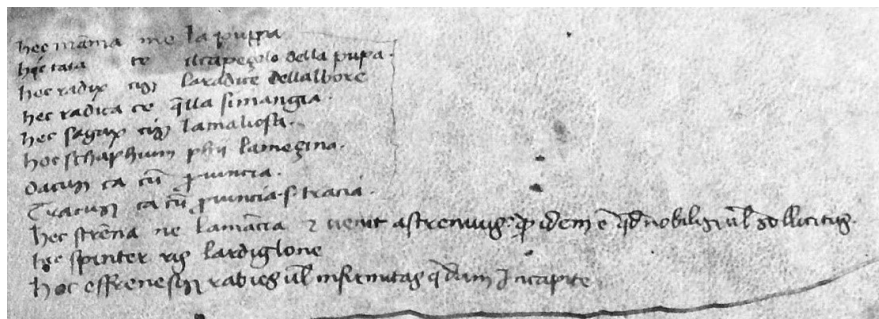 hec mãma me la puppa
hec tata te ilcapeçolo della pupa.
hec radix cis laradice dellalbore
hec radica ce q̃lla simangia.
hec sagax cis lamaliosa.
hoc schaphium phii lamezina.
datus ta tũ ꝓuincia.
Tratus ta tũ ꝓuincia .s. tracia.
hec strẽna ne lamãcia ⁊ uenit astrenuus. idem ẽ qđ nobilis ul sollicitus.
hec spinter ris lardiglone
hec effrenesis rabies ul infirmitas q̃dam Incapite